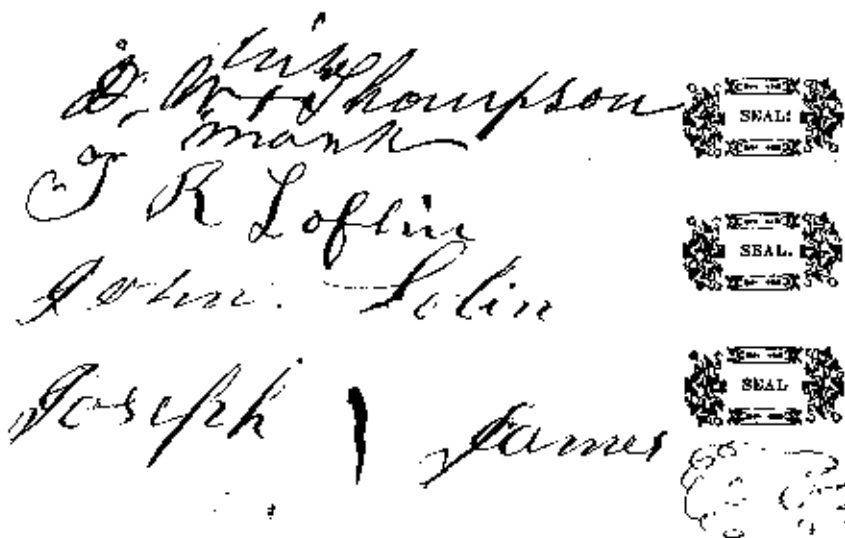 his
D. W + Thompson SEAL.
mark
T R Loflin SEAL.
John. Lolin
Joseph James SEAL